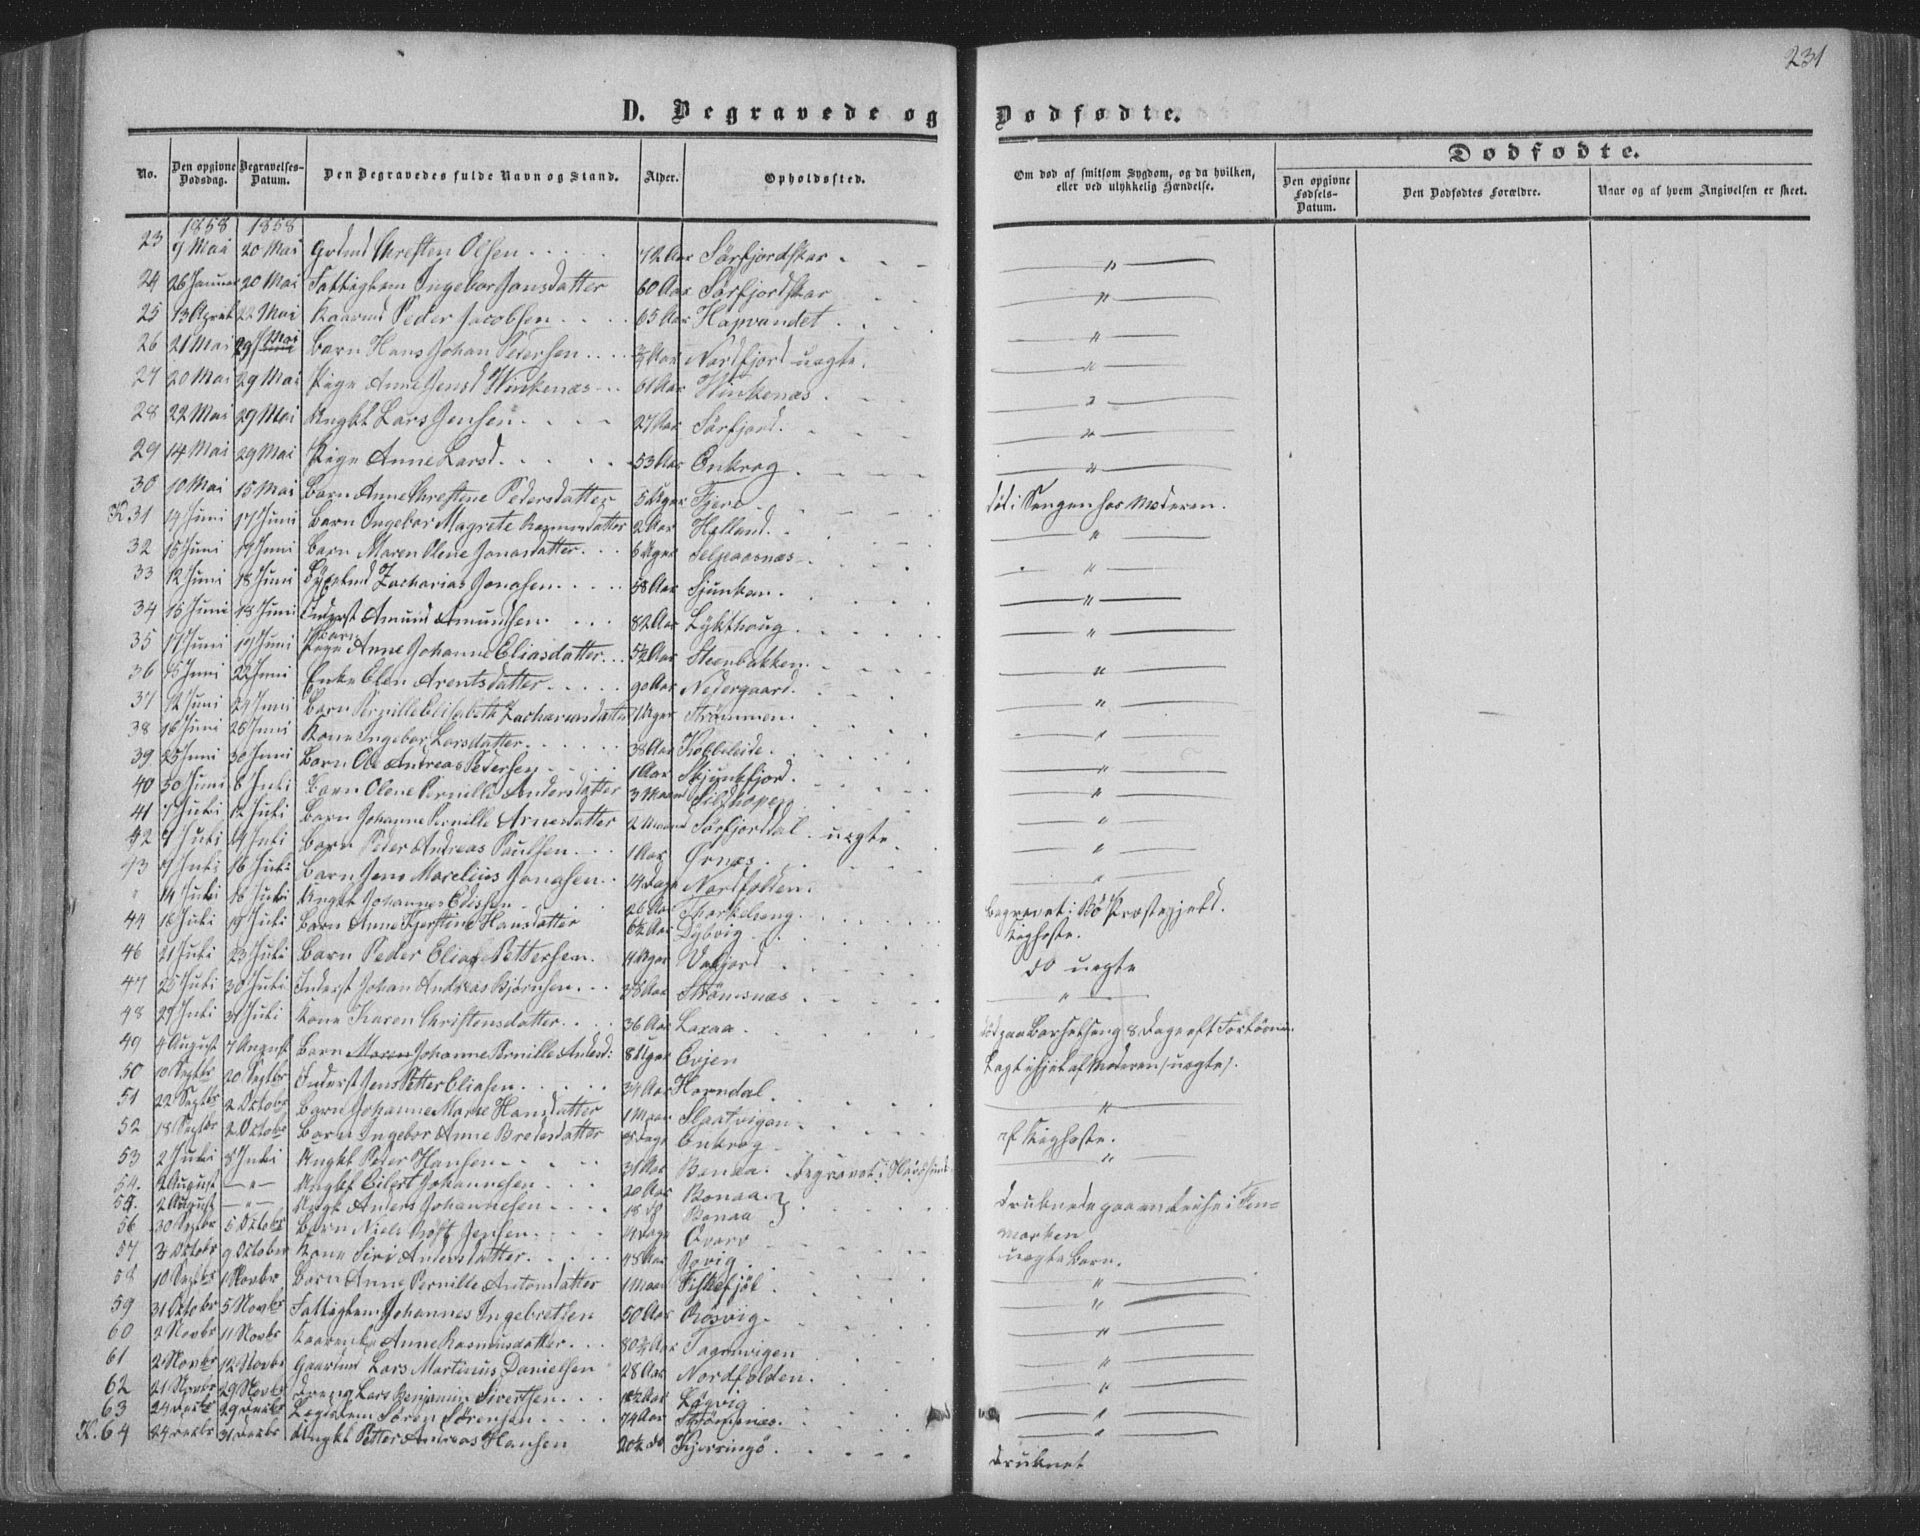 231
D. Begravede og Dødfødte.
No. Den opgivne Dødsdag. Begravelses-Datum. Den Begravedes fulde Navn og Stand. Alder. Opholdssted. Om død af smitsom Sygdom, og da hvilken, eller ved ulykkelig Hændelse. Dødfødte.
Den opgivne Fødsels-Datum. Den Dødfødtes Forældre. Naar og af hvem Angivelsen er skeet.
1858 1858
23 9 Mai 20 Mai Christen Olsen 72 Aar Sørfjordskar "
24 26 Januar 20 Mai Fattiglem Ingebor Jonsdatter 60 Aar Sørfjordskar "
25 13 April 22 Mai Kaarmd Peder Jacobsen 65 Aar Hopvandet "
26 21 Mai 29 Mai Barn Hans Johan Pedersen Aar Nordfjord uegte. "
27 20 Mai 29 Mai Pige Anne Jensd Winkenæs 61 Aar Winkenæs "
28 22 Mai 29 Mai Ungkl Lars Jensen 27 Aar Sørfjord "
29 14 Mai 29 Mai Pige Anne Larsd. 53 Aar Enkrog "
30 10 Mai 15 Mai Barn Anne Christine Pedersdatter 5 Uger Fjere død i Sengen hos Moderen.
K 31 14 Juni 17 Juni Barn Ingebor Magrete Rasmusdatter 2 Aar Helland "
32 15 Juni 17 Juni Barn Maren Olene Jonasdatter 6 Uger Selpaasnæs "
33 12 Juni 18 Juni Zacharias Jonasen 58 Aar Sjunkan "
34 15 Juni 18 Juni Inderst Amund Amundsen 82 Aar Lykthoug "
35 17 Juni 19 Juni Barn Pige Anne Johanne Eliasdatter 5½ Aar Steenbakken "
36 15 Juni 22 Juni Enke Elen Arentsdatter 90 Aar Nedergaard "
37 12 Juni 24 Juni Barn Pernille Elisabeth Zachariasdatter 7 Uger Strømmen "
38 16 Juni 25 Juni Kone Ingebor Larsdatter 38 Aar Kobbeleide "
39 25 Juni 30 Juni Barn Ole Andreas Pedersen 1 Aar Skjunkfjord "
40 30 Juni 8 Juli Barn Olene Pernille Andersdatter 3 Maaned Sildhopen "
41 7 Juli 12 Juli Barn Johanne Pernille Arnesdatter 2 Maaned Sørfjorddal uegte "
42 9 Juli 14 Juli Barn Peder Andreas Paulsen 1 Aar Ørnæs "
43 9 Juli 16 Juli Barn Jens Marelius Jonasen 14 Dage Nordfolden "
" 14 Juli 16 Juli Ungkl Johannes Edisen 26 Aar Thorkelseng begravet i Bø Præstegjeld.
44 16 Juli 19 Juli Barn Anne Kjerstine Hansdatter 6½ Aar Dybvig Kighoste.
46 21 Juli 23 Juli Barn Peder Elias Pettersen 4 Uger Vasfjord do uegte
47 25 Juli 30 Juli Inderst Johan Andreas Bjørnsen 38 Aar Strømsnæs "
48 27 Juli 31 Juli Kone Karen Christensdatter 36 Aar Laxaa død paa Barselseng 8 Dage eft Forløsn.
49 4 August 7 August Barn Maren Johanne Pernille Andersd: 8 Uger Evjen Lagt ihjel af Moderen (uegte).
50 10 Septbr 20 Septbr Inderst Jens Petter Eliasen 34 Aar Horndal "
51 22 Septbr 2 Octobr Barn Johanne Marie Hansdatter 1 Maan Slaatvigen af Kighoste.
52 18 Septbr 2 Octobr Barn Ingebor Anne Bredesdatter Dage Enkrog "
53 2 Juli 8 Juli Ungkl Peter Hansen 31 Aar Bonaa. Begravet i
54. 2 August - " - Ungkl Eilert Johannesen 20 Aar Bonaa. } Druknede paa en Reise i Fen-
55. 2 August - " - Ungk Anders Johannesen 18 d Bonaa } marken
56 30 Septbr 5 Octobr Barn Niels Røst Jensen 14 Dage Evarv uegte Barn.
57 3 Octobr 9 October Kone Siri Andersdatter 48 Aar Bovig "
58 10 Septbr 1 Novbr Barn Anne Pernille Antonsdatter 1 Maan Fiskefjøl "
59 31 Octobr 5 Novbr Fattiglem Johannes Ingebretsen 50 Aar Røsvig "
60 2 Novbr 11 Novbr Kaarenke Anne Rasmusdatter 80¾ Aar Tagnvigen "
61 2 Novbr 12 Novbr Gaardmd Lars Martinus Danielsen 28 Aar Nordfolden "
62 21 Novbr 29 Novbr Dreng Lars Benjamin Sivertsen Aar Løgvig "
63 24 Decbr 29 Decbr Legdslem Søren Sørensen 74 Aar Strømsnæs. "
K. 64 24 Decbr 31 Decbr Ungkl Petter Andreas Hansen 20½ do Kjerringø Druknet